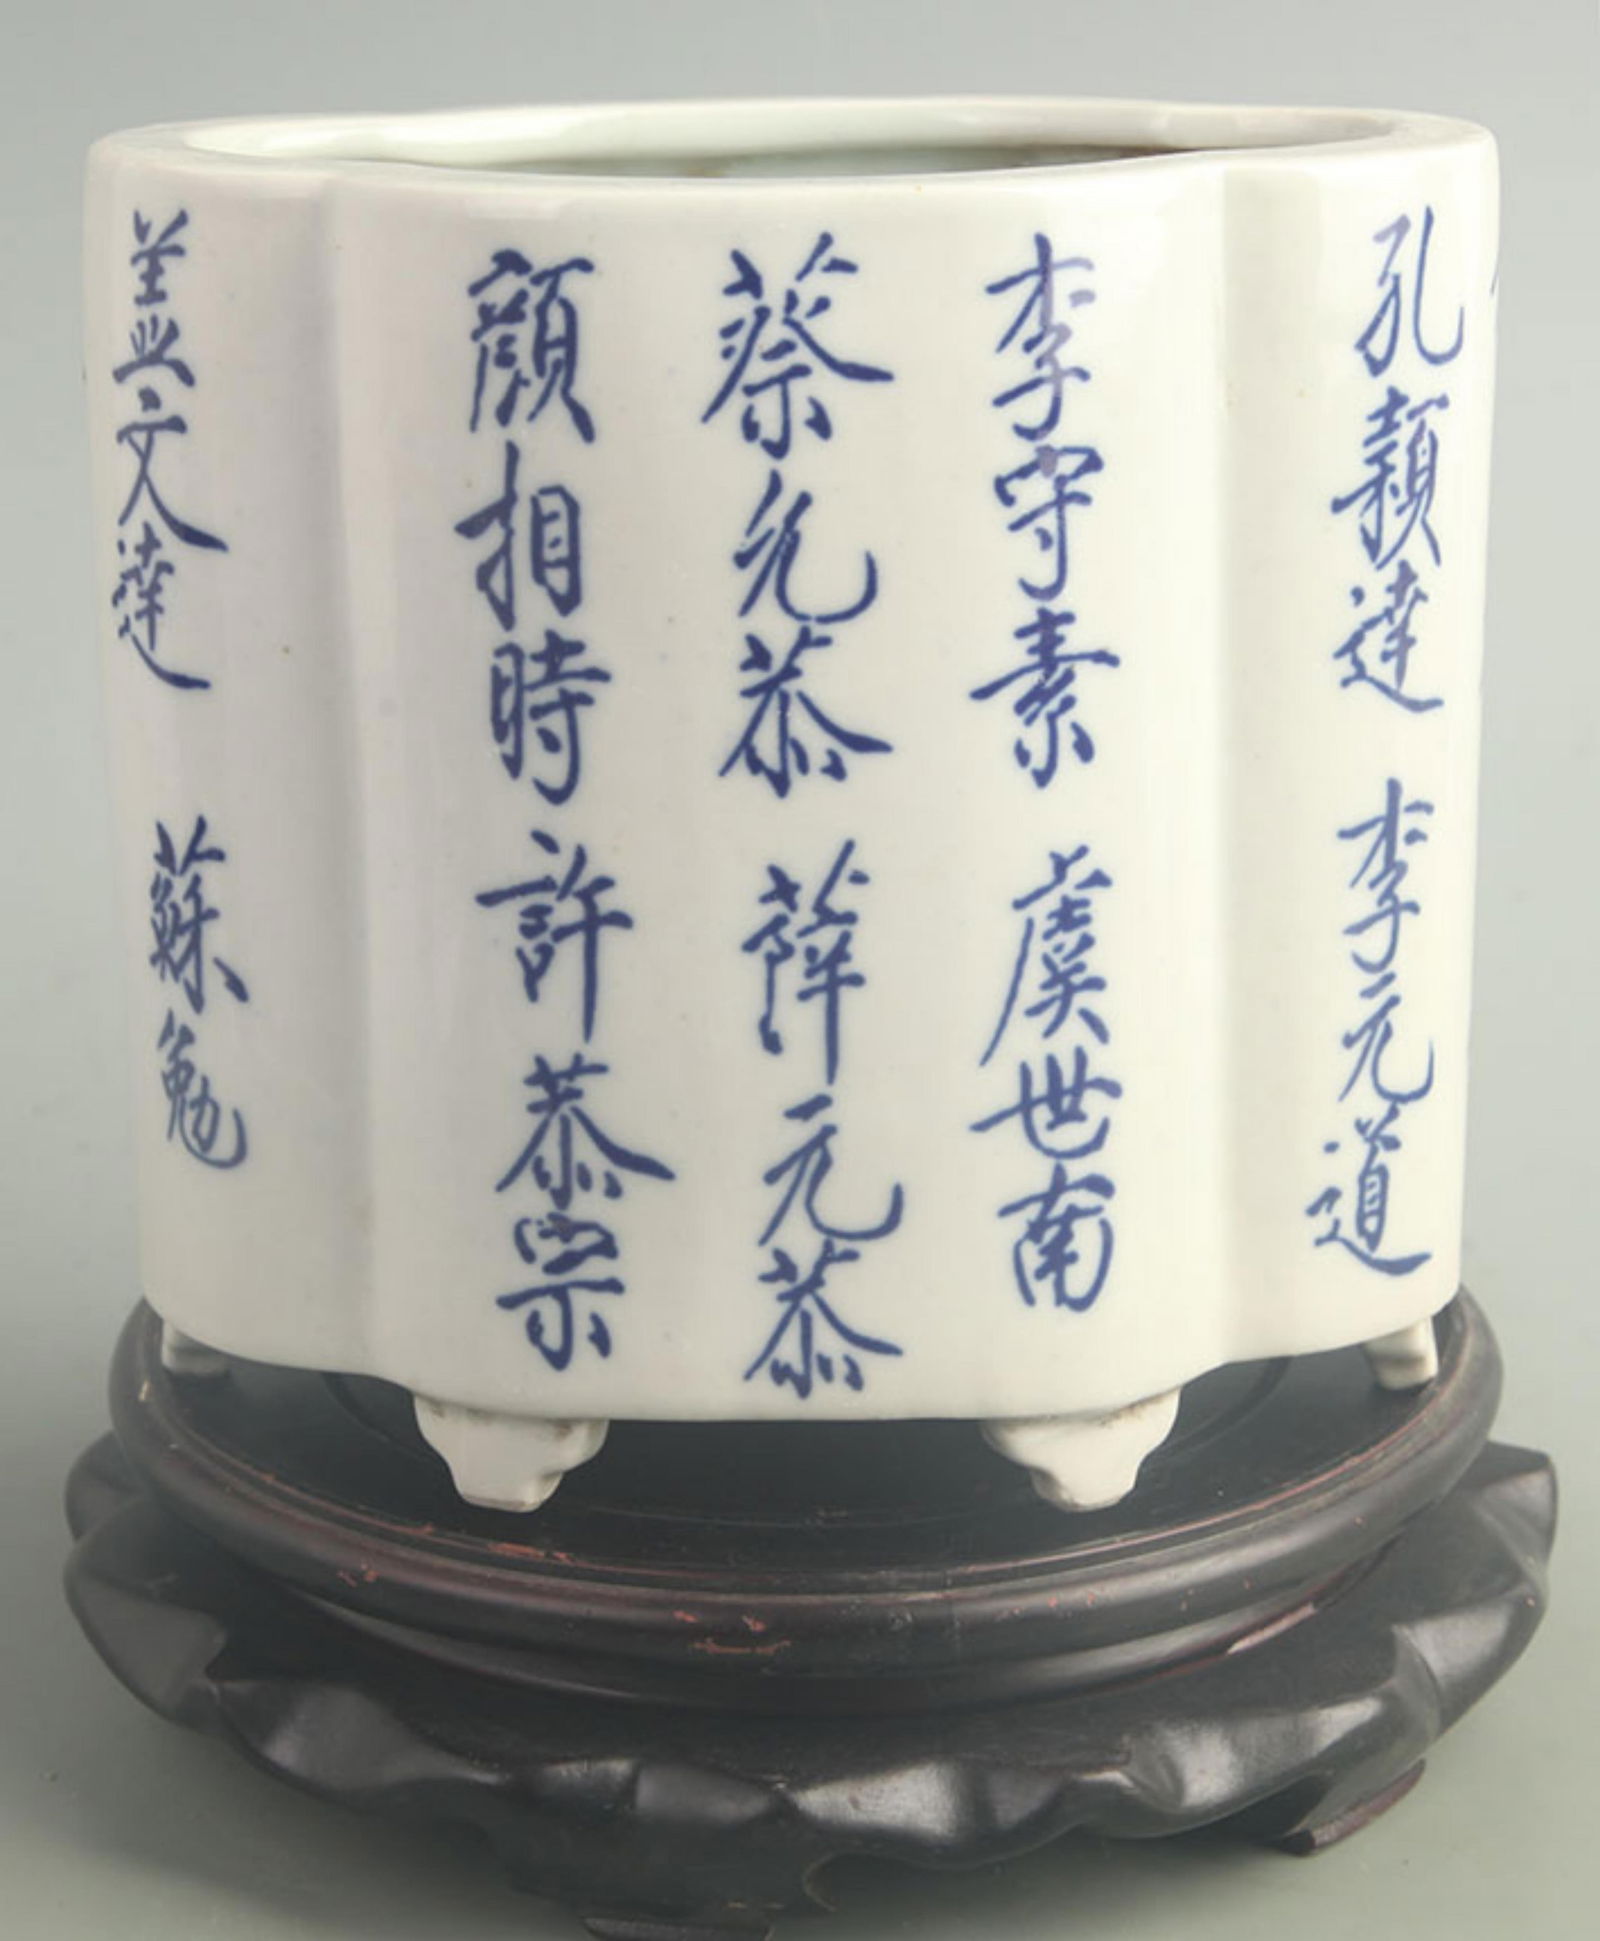 孔頴達 李元道
李守素 虞世南
蔡允恭 薛元恭
顔相時 許恭宗
盖文達 蘇勉